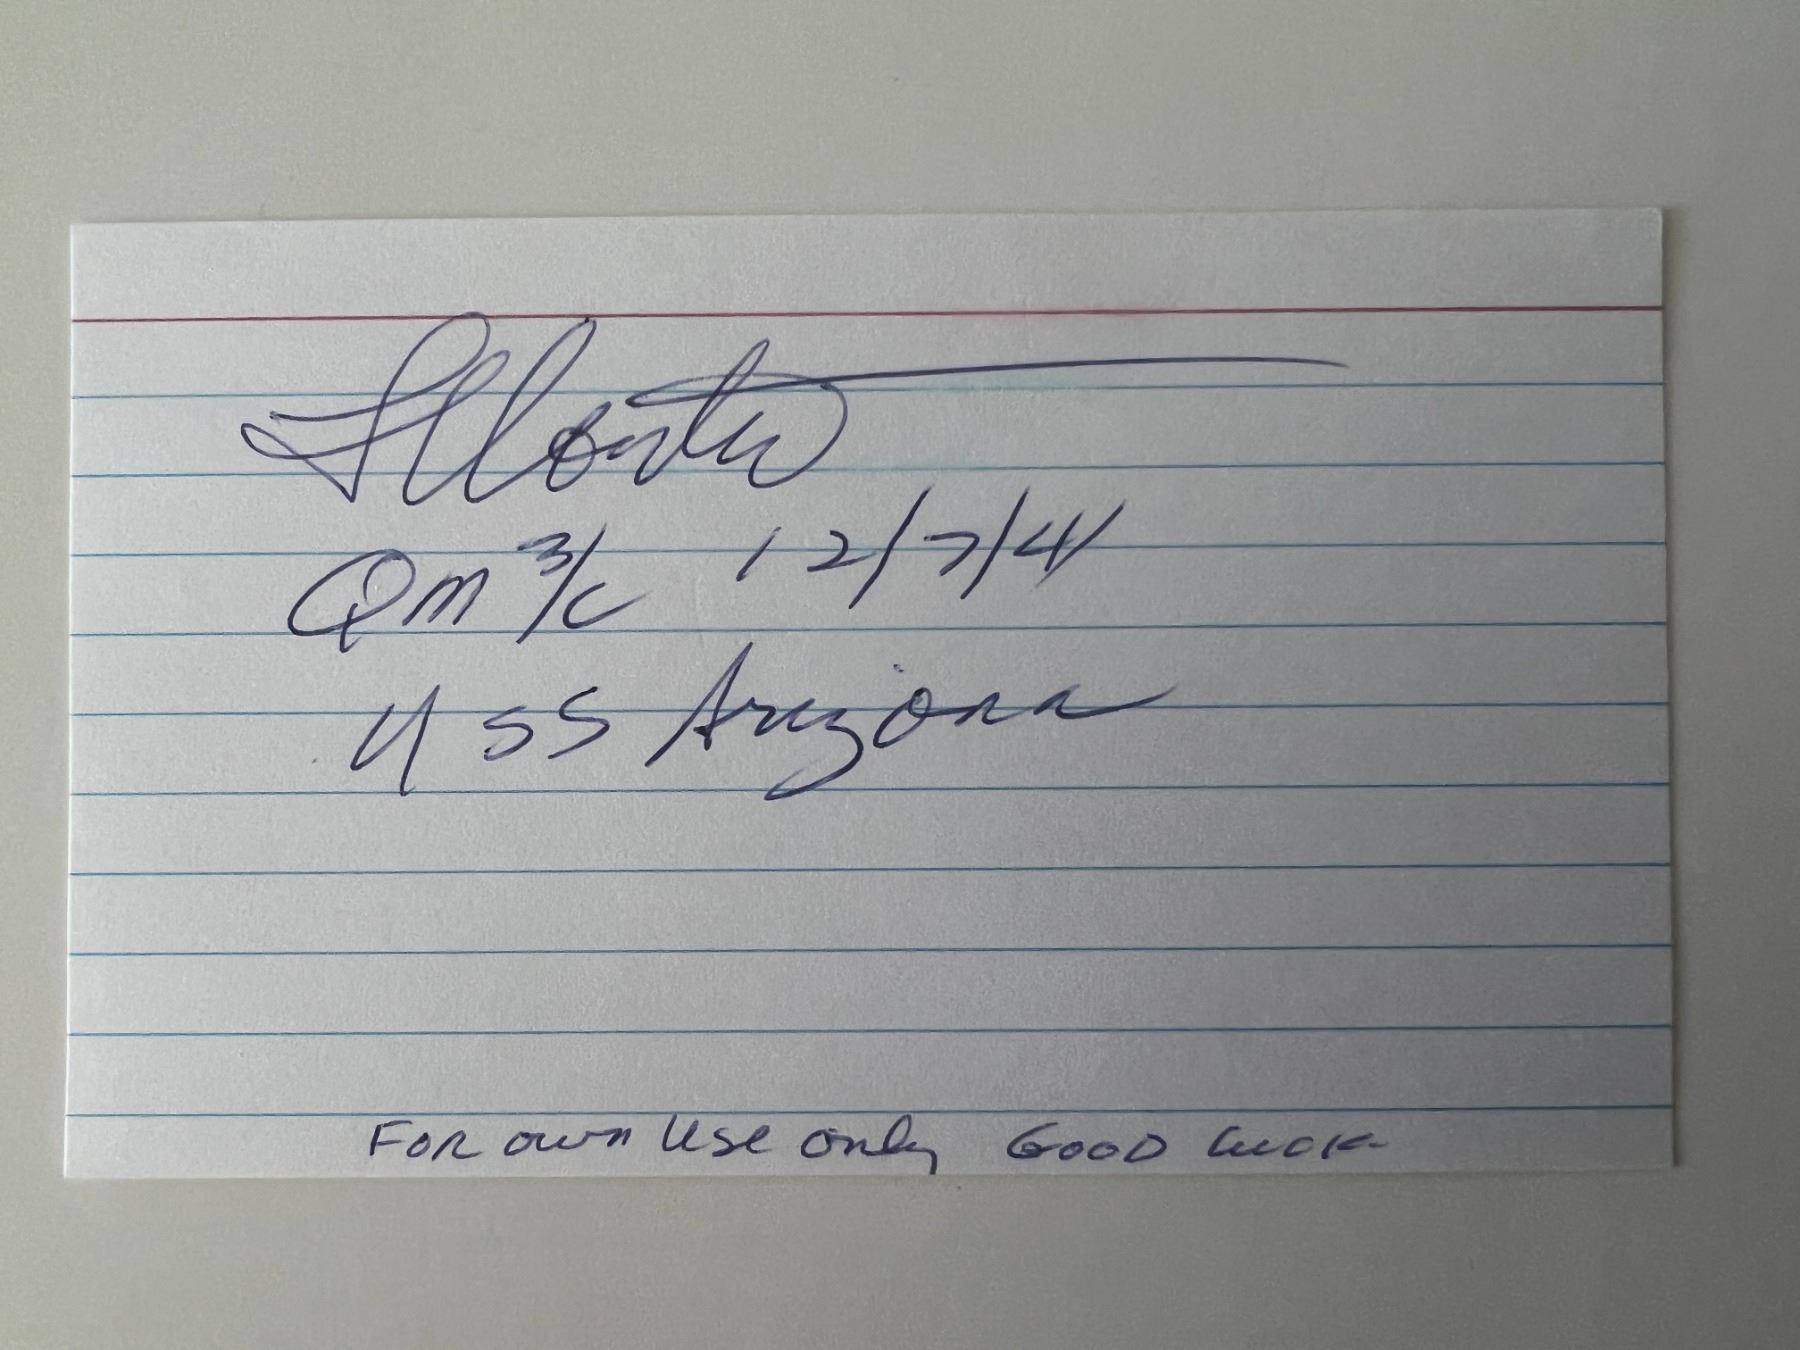 Qm 3/c 12/7/41
USS Arizona
For own use only Good luck